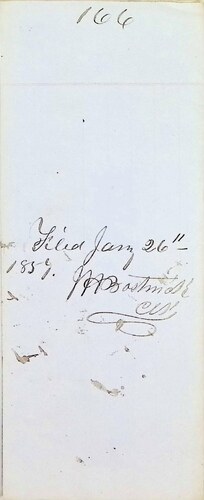 166
Filed Jany 26"
1857. J R Bostwick
Clk